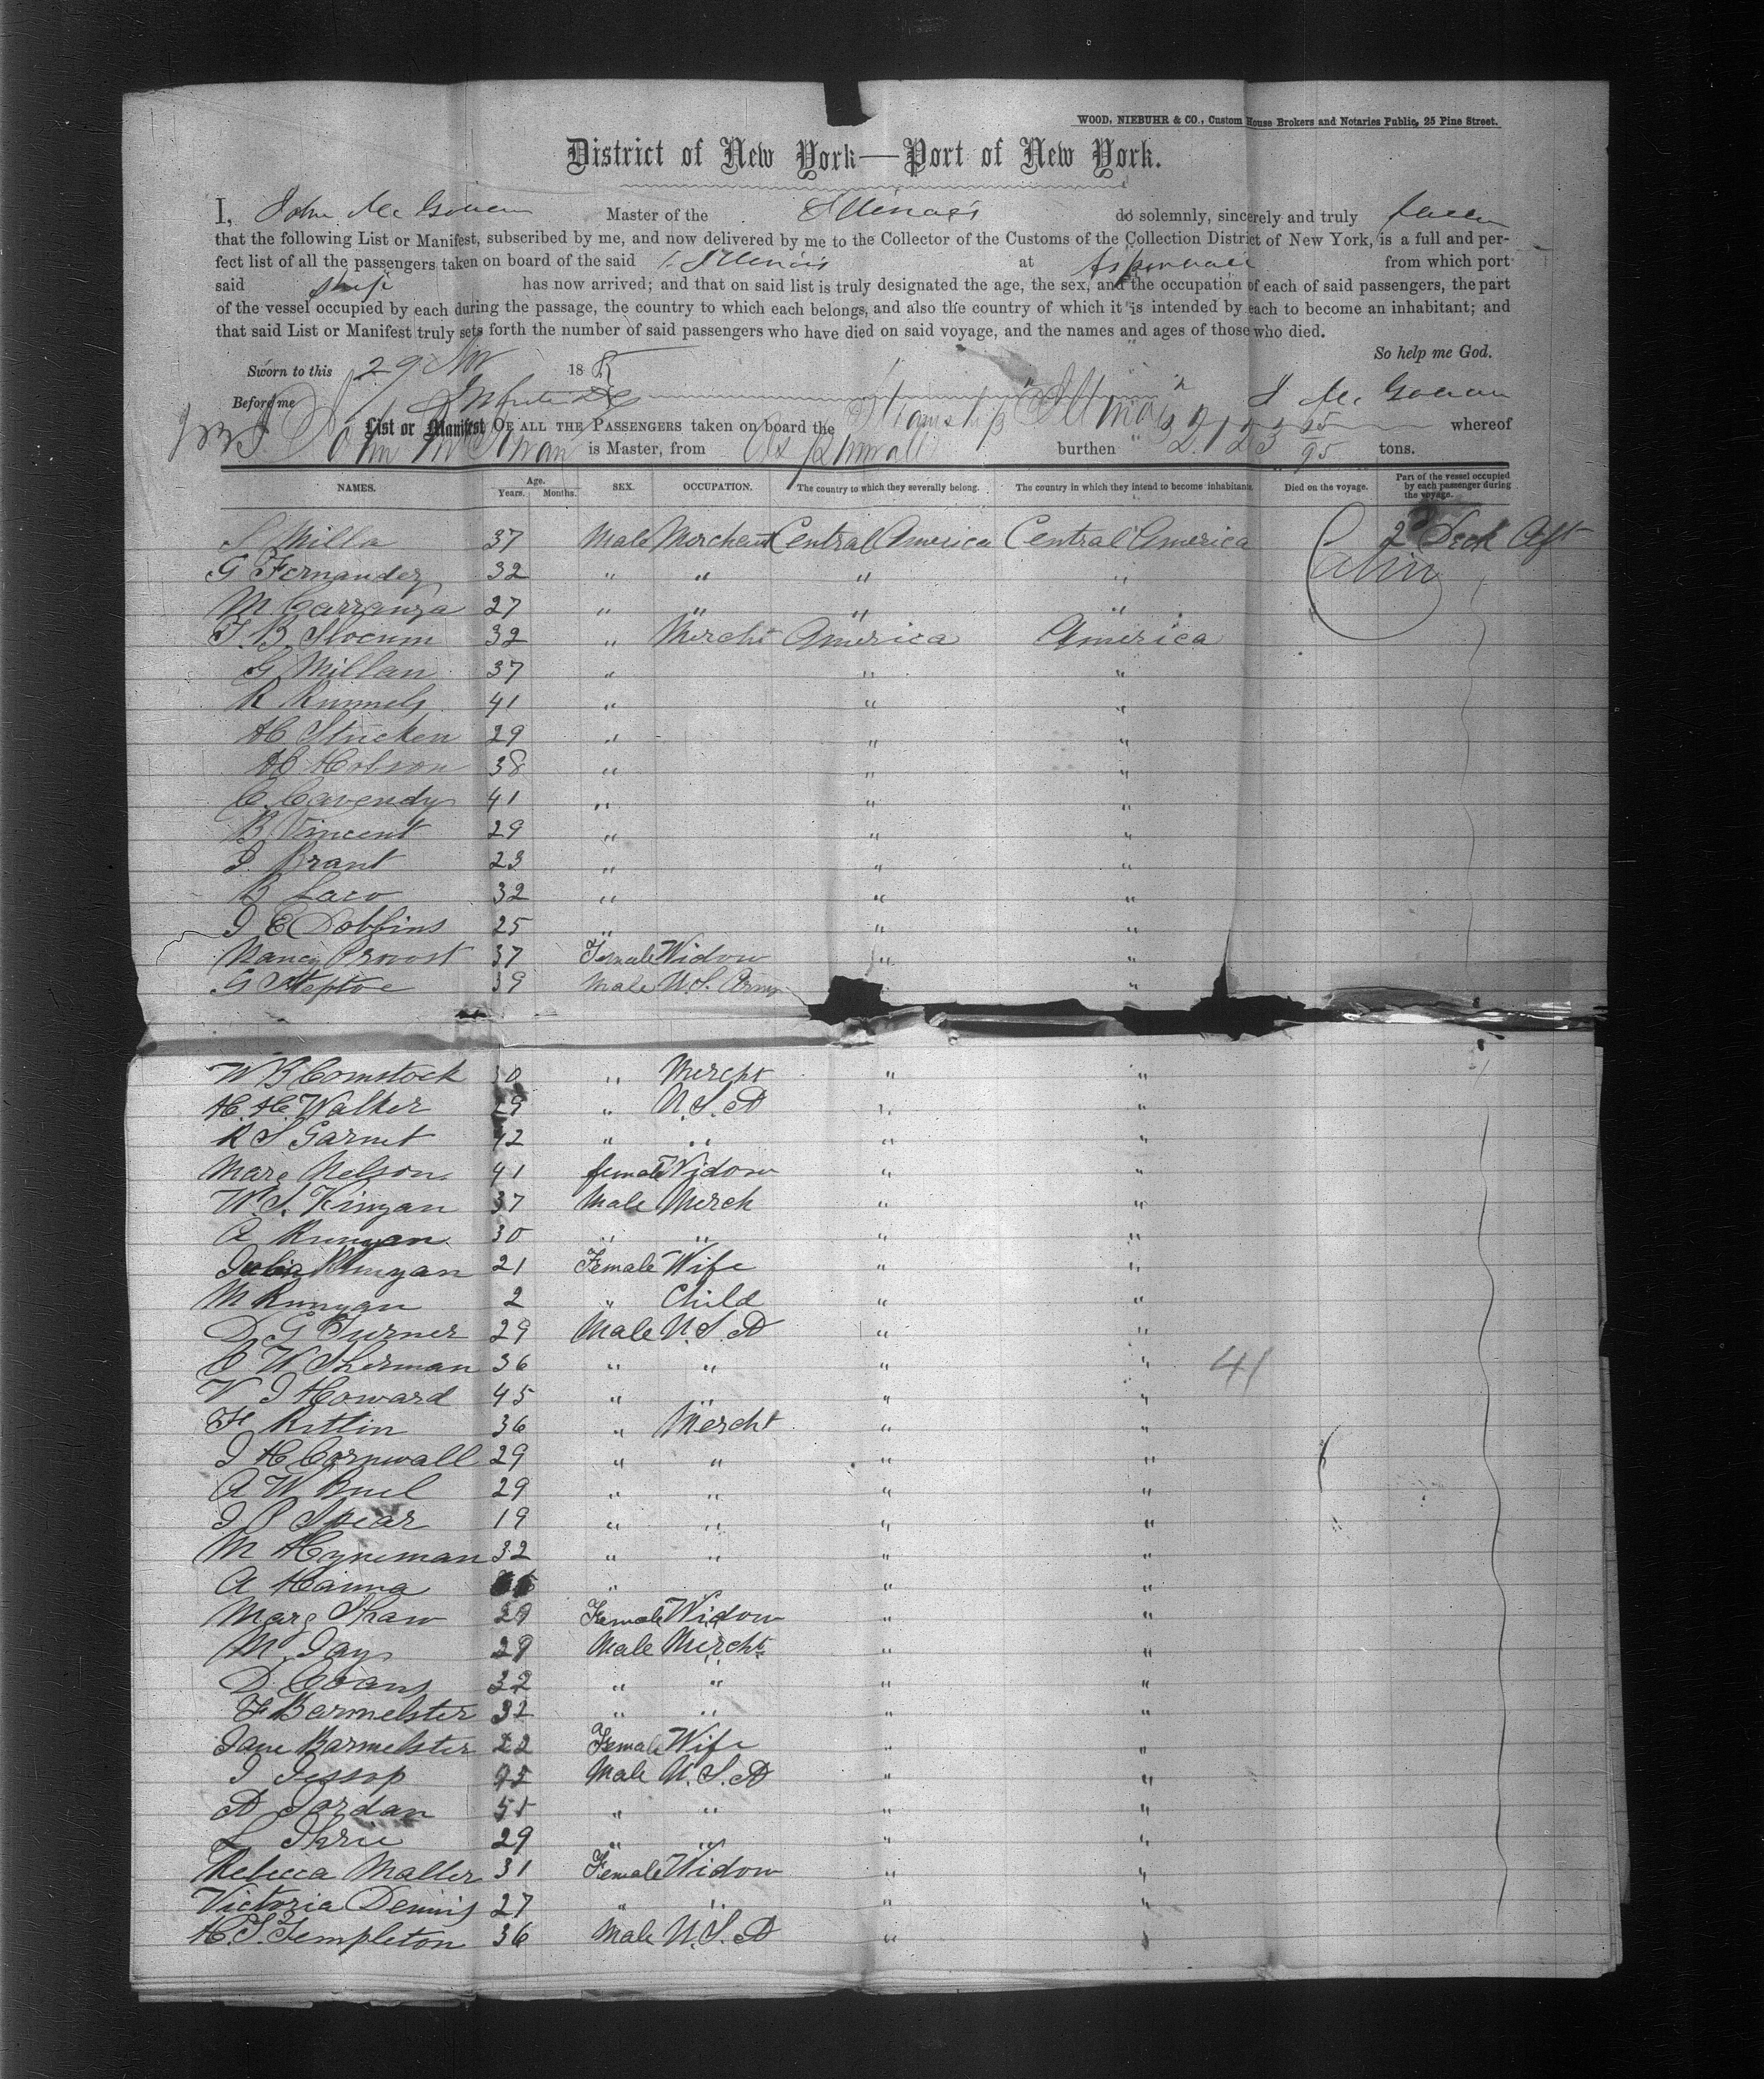 WOOD, NIEBUHR & CO., Custom House Brokers and Notaries Public, 25 Pine Street.
District of New York—Port of New York.
I, John Mc Gowan Master of the Illinois do solemnly, sincerely and truly swear
that the following List or Manifest, subscribed by me, and now delivered by me to the Collector of the Customs of the Collection District of New York, is a full and per-
fect list of all the passengers taken on board of the said Illinois at Aspinwall from which port
said ship has now arrived; and that on said list is truly designated the age, the sex, and the occupation of each of said passengers, the part
of the vessel occupied by each during the passage, the country to which each belongs, and also the country of which it is intended by each to become an inhabitant; and
that said List or Manifest truly sets forth the number of said passengers who have died on said voyage, and the names and ages of those who died.
So help me God.
Sworn to this 29 Nov 185
Before me J Mc Gowan
List or Manifest OF ALL THE PASSENGERS taken on board the Steamship "Illinois" whereof
John McGowan is Master, from Aspinwall burthen 2123 65/95 tons.
NAMES. Age. Years. Months. SEX. OCCUPATION. The country to which they severally belong. The country in which they intend to become inhabitants. Died on the voyage. Part of the vessel occupied by each passenger during the voyage.
S Milla 37 Male Merchant Central America Central America 2d Deck Aft
G Fernandez 32 " " " " Cabin
M Carranza 27 " " " "
F. B Slocum 32 " Mercht America America
G Millan 37 " " "
R Runnels 41 " " "
H Stricken 29 " " "
H Hobson 38 " " "
C. Cavendy 41 " " "
B Vincent 29 " " "
J. Brant 23 " " "
B Laco 32 " " "
J E Dobbins 25 " " "
Nancy Provost 37 Female Widow " "
G Steptoe 39 Male U.S. Army "
W B Comstock 30 " Mercht " "
H. H. Walker 29 " U.S.A " "
R S Garnet 42 " " " "
Marg Nelson 41 female Widow " "
W. S. Kinyan 37 Male Merch " "
A Runyan 30 " " " "
Julia Runyan 21 Female Wife " "
M Runyan 2 " Child " "
D G Turner 29 Male U.S.A " "
C W Sherman 36 " " " " 41
V J Howard 45 " " " "
F Rittin 36 " Mercht " "
J H Cornwall 29 " " " "
A W Buel 29 " " " "
J P Spear 19 " " " "
M Hyneman 32 " " " "
A Hanna " " "
Marg Shaw 29 Female Widow " "
M Jay 29 Male Mercht " "
D Evans 32 " " " "
F Barmelster 32 " " " "
Jane Barmelster 22 Female Wife " "
J Jessop 45 Male U.S.A " "
A Jordan 55 " " " "
L Shrie 29 " " " "
Rebecca Maller 31 Female Widow " "
Victoria Dennis 27 " " " "
H. S. Templeton 36 Male U.S.A " "